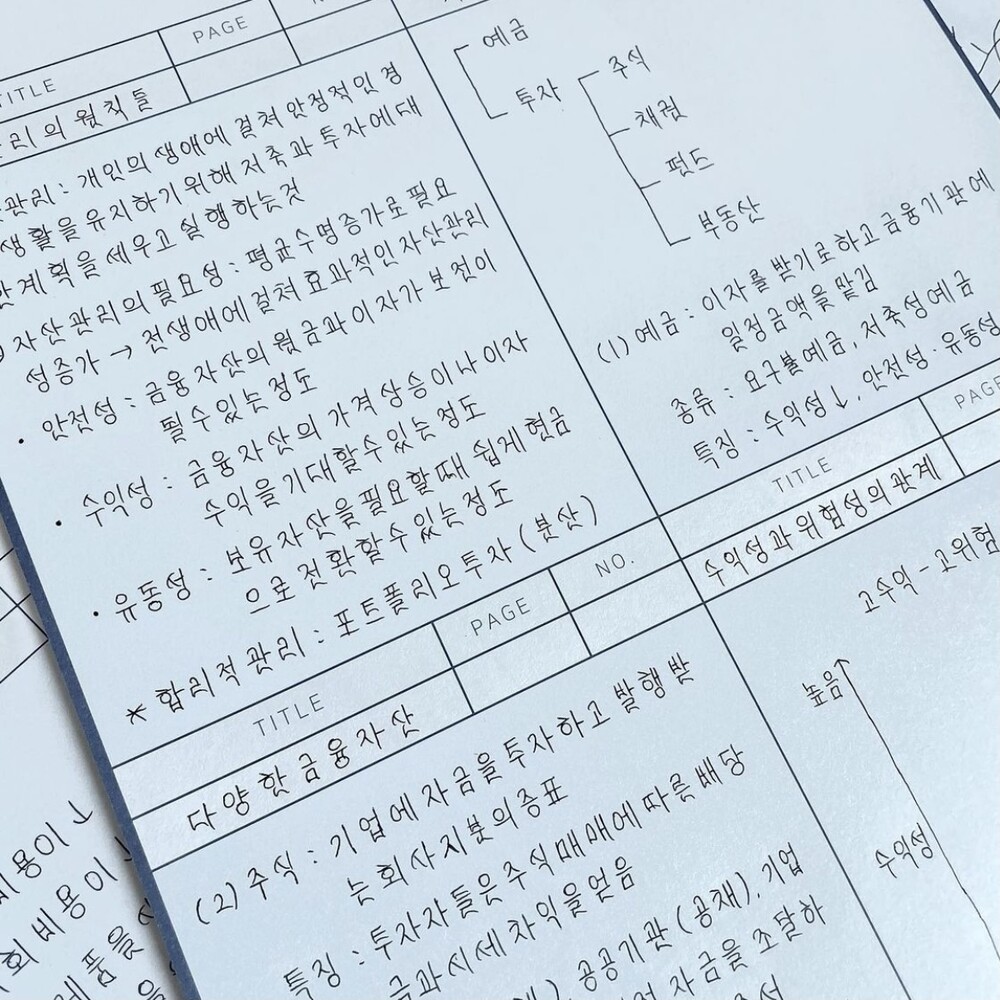 PAGE
TITLE
리의 원칙들
관리 : 개인의 생애에 걸쳐 안정적인 경
생활을 유지하기위해 저축과 투자에 대
한 계획을 세우고 실행하는것
자산관리의 필요성 : 평균수명증가로 필요
성증가 → 전생애에 걸쳐 효과적인 자산관리
· 안전성 : 금융자산의 원금과 이자가 보전이
될수있는정도
· 수익성 : 금융자산의 가격상승이나 이자
수익을기대할수있는정도
· 유동성 : 보유자산을필요할때 쉽게 현금
으로 전환할수있는정도
* 합리적관리 : 포트폴리오투자 (분산)
예금
투자
주식
채권
펀드
부동산
(1) 예금 : 이자를 받기로하고 금융기관에
일정금액을 맡김
종류 : 요구불예금, 저축성예금
특징 : 수익성↓, 안전성·유동성
TITLE
PAGE
NO.
다양한 금융자산
(2) 주식 : 기업에 자금을 투자하고 발행받
는 회사지분의 증표
특징 : 투자자들은 주식매매에 따른 배당
금과 시세차익을 얻음
공공기관 (공채), 기업
자금을 조달하
TITLE
PAGE
수익성과 위험성의 관계
고수익 - 고위험
높음
수익성
비용이↓
회비용이
제품을